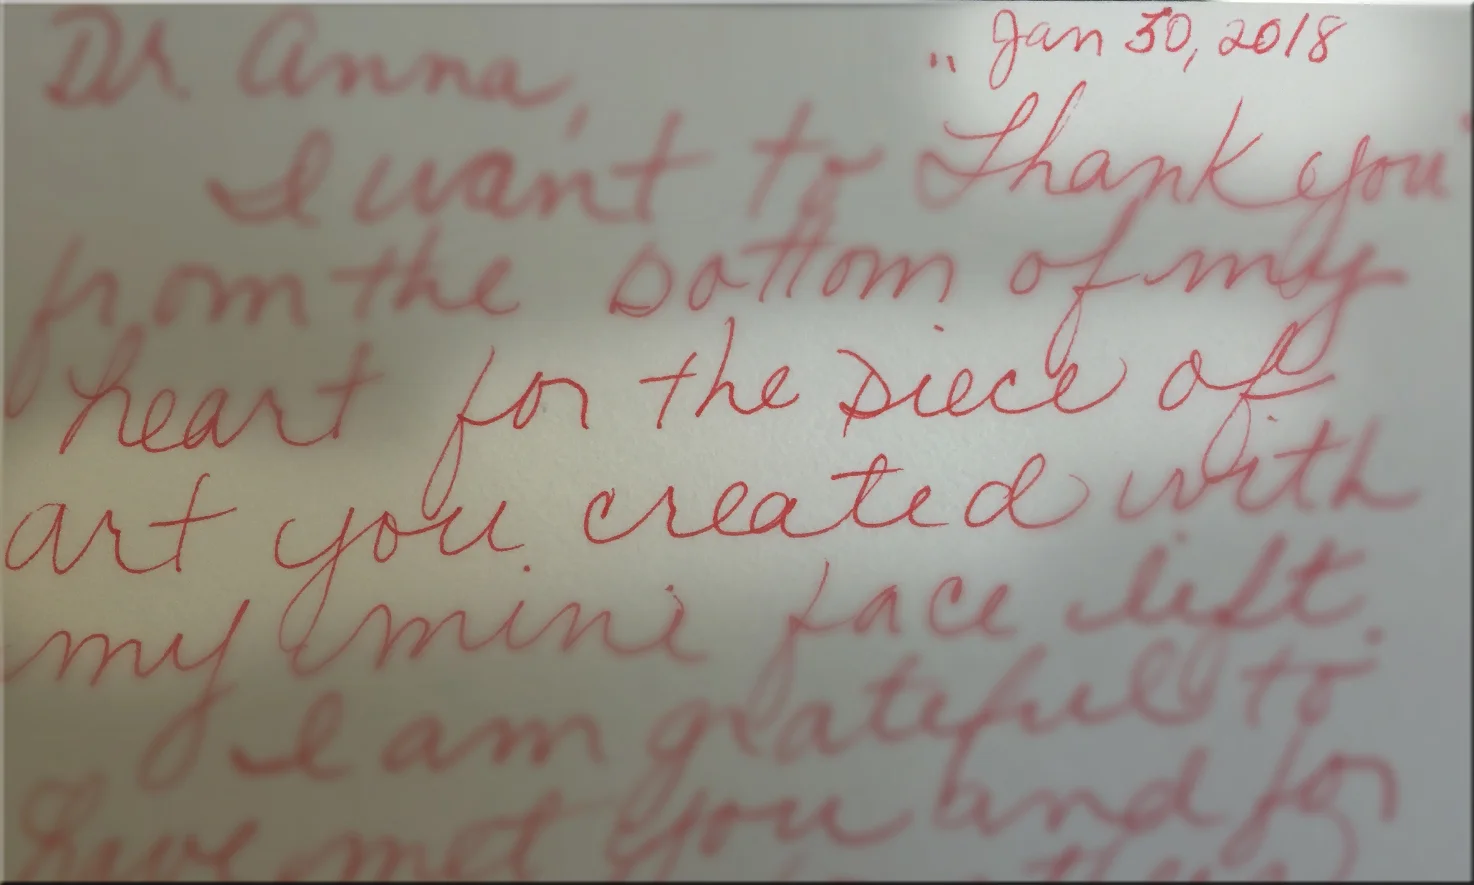 Jan 30, 2018
Dr. Anna,
I want to "Thank you"
from the bottom of my
heart for the piece of
art you created with
my mini face lift.
I am grateful to
have met you and for